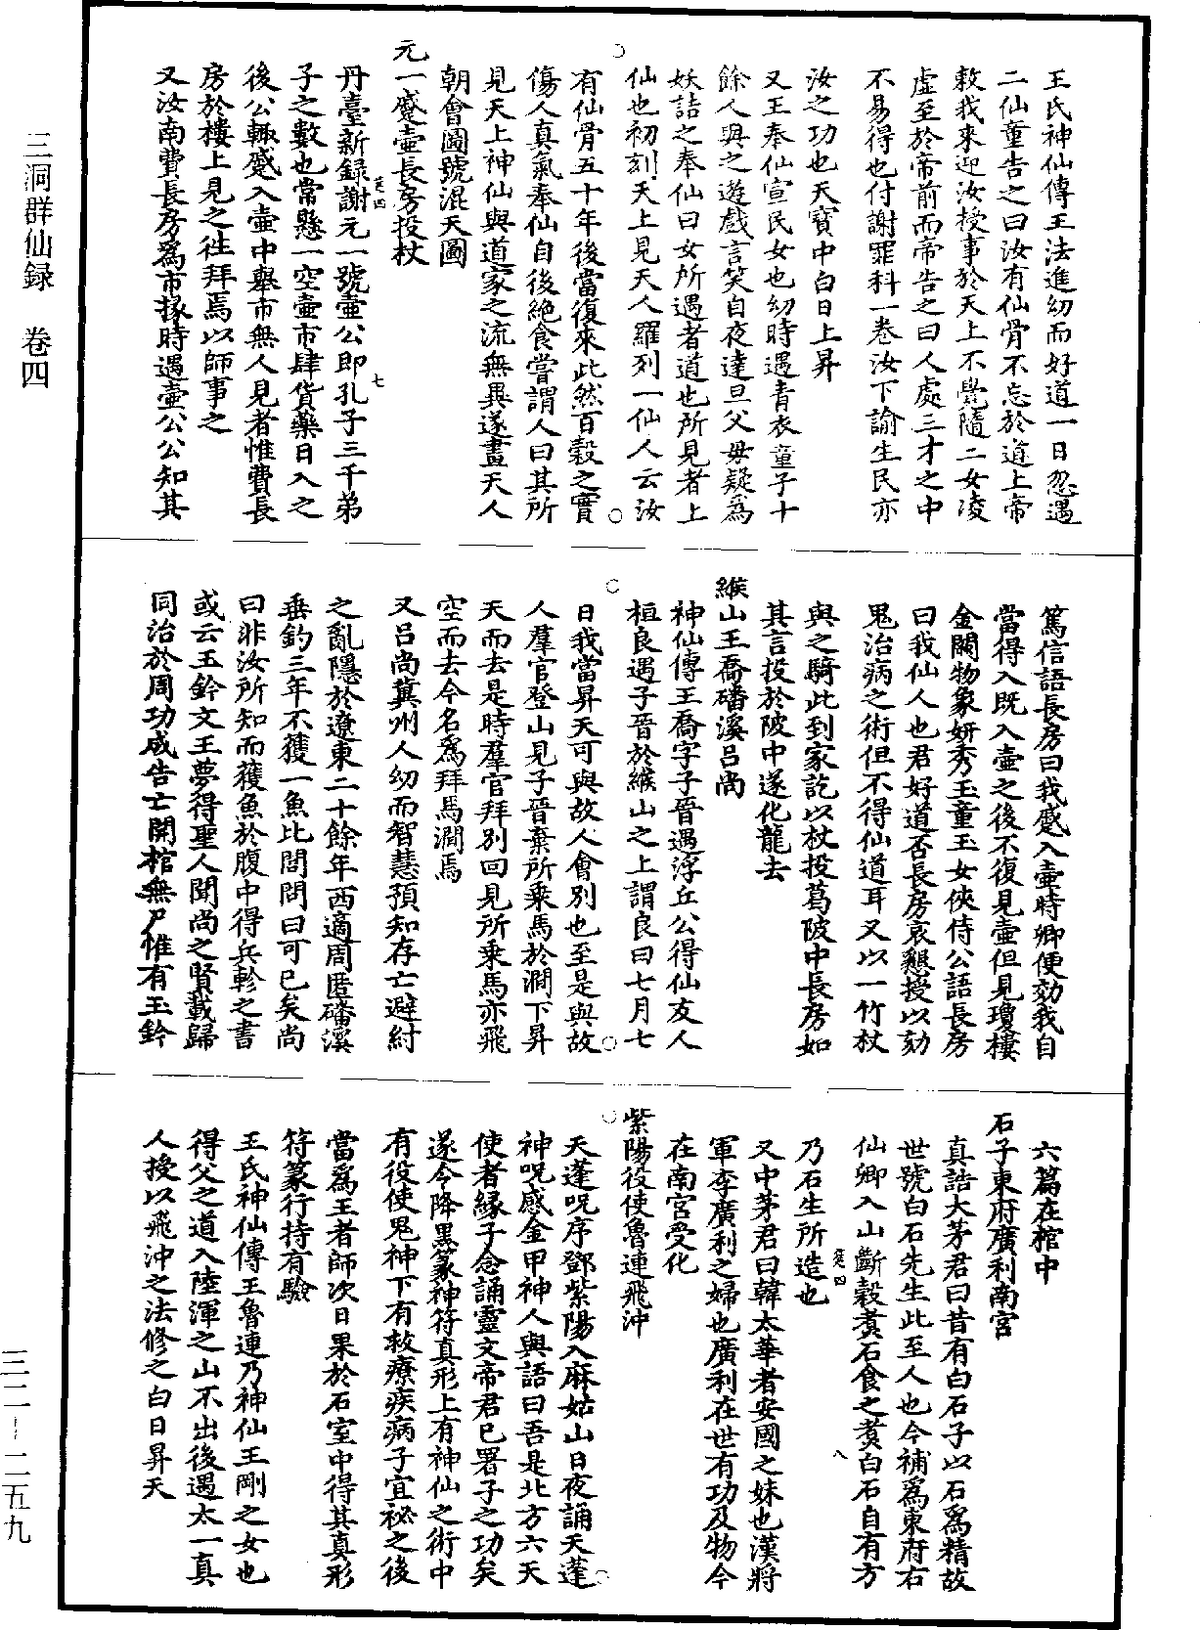 三洞群仙録　卷四
王氏神仙傳王法進幼而好道一日忽遇
二仙童告之曰汝有仙骨不忘於道上帝
敕我來迎汝授事於天上不覺隨二女凌
虛至於帝前而帝告之曰人處三才之中
不易得也付謝罪科一卷汝下諭生民亦
汝之功也天寶中白日上昇
又王奉仙宣民女也幼時遇青衣童子十
餘人與之遊戲言笑自夜達旦父毋疑爲
妖詰之奉仙曰女所遇者道也所見者上
仙也初刻天上見天人羅列一仙人云汝
有仙骨五十年後當復來此然百穀之實
傷人真氣奉仙自後絶食嘗謂人曰其所
見天上神仙與道家之流無異遂畫天人
朝會圖號混天圖
元一蹙壺長房投杖
丹臺新録謝元一號壺公即孔子三千弟
子之數也常懸一空壺市肆貨藥日入之
後公輙蹙入壺中舉市無人見者惟費長
房於樓上見之往拜焉以師事之
又汝南費長房爲市掾時遇壺公公知其
篤信語長房曰我蹙入壺時卿便効我自
當得入既入壺之後不復見壺但見瓊樓
金闕物象妍秀玉童玉女俠侍公語長房
曰我仙人也君好道否長房哀懇授以劾
鬼治病之術但不得仙道耳又以一竹杖
與之騎此到家訖以杖投葛陂中長房如
其言投於陂中遂化龍去
緱山王喬磻溪吕尚
神仙傳王喬字子晉遇浮丘公得仙友人
桓良遇子晉於緱山之上謂良曰七月七
日我當昇天可與故人會別也至是與故
人羣官登山見子晉棄所乘馬於澗下昇
天而去是時羣官拜別回見所乘馬亦飛
空而去今名爲拜馬澗焉
又吕尚冀州人幼而智慧預知存亡避紂
之亂隱於遼東二十餘年西適周匿磻溪
垂釣三年不獲一魚比閭問曰可已矣尚
曰非汝所知而獲魚於腹中得兵軫之書
或云玉鈐文王夢得聖人聞尚之賢載歸
同治於周功成告亡開棺無尸惟有玉鈐
六篇在棺中
石子東府廣利南宮
真誥大茅君曰昔有白石子以石爲精故
世號白石先生此至人也今補爲東府右
仙卿入山斷穀煑石食之煑白石自有方
乃石生所造也
又中茅君曰韓太華者安國之妹也漢將
軍李廣利之婦也廣利在世有功及物今
在南宮受化
紫陽役使魯連飛沖
天蓬呪序鄧紫陽入麻姑山日夜誦天蓬
神呪感金甲神人與語曰吾是北方六天
使者緣子念誦靈文帝君已署子之功矣
遂令降黑篆神符真形上有神仙之術中
有役使鬼神下有救療疾病子宜祕之後
當爲王者師次日果於石室中得其真形
符篆行持有驗
王氏神仙傳王魯連乃神仙王剛之女也
得父之道入陸渾之山不出後遇太一真
人授以飛沖之法修之白日昇天
三二—二五九